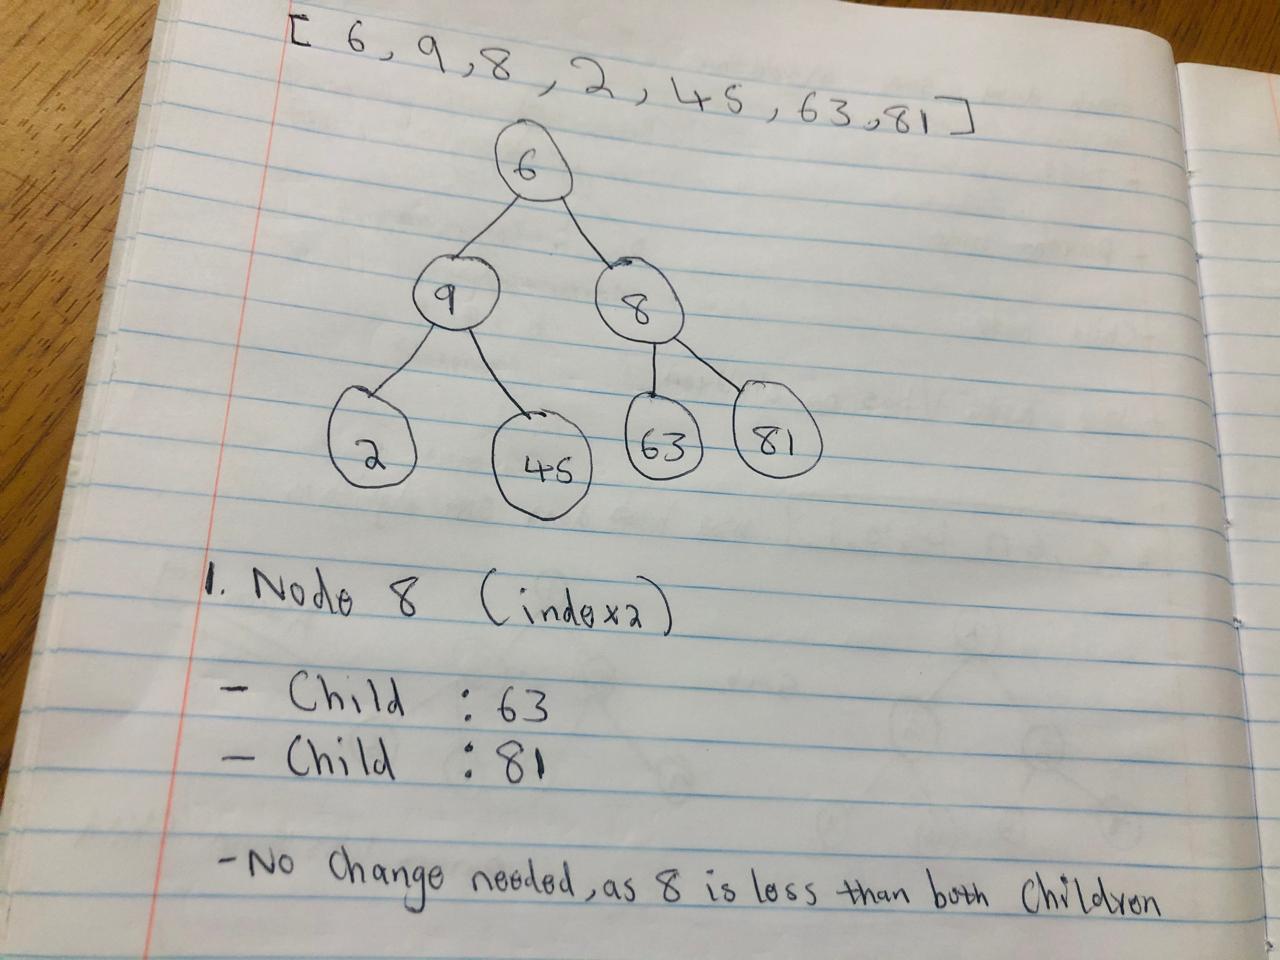 [ 6, 9, 8, 2, 45, 63, 81 ]
6
9 8
2 45 63 81
1. Node 8 (index 2)
- Child : 63
- Child : 81
- No change needed, as 8 is less than both children